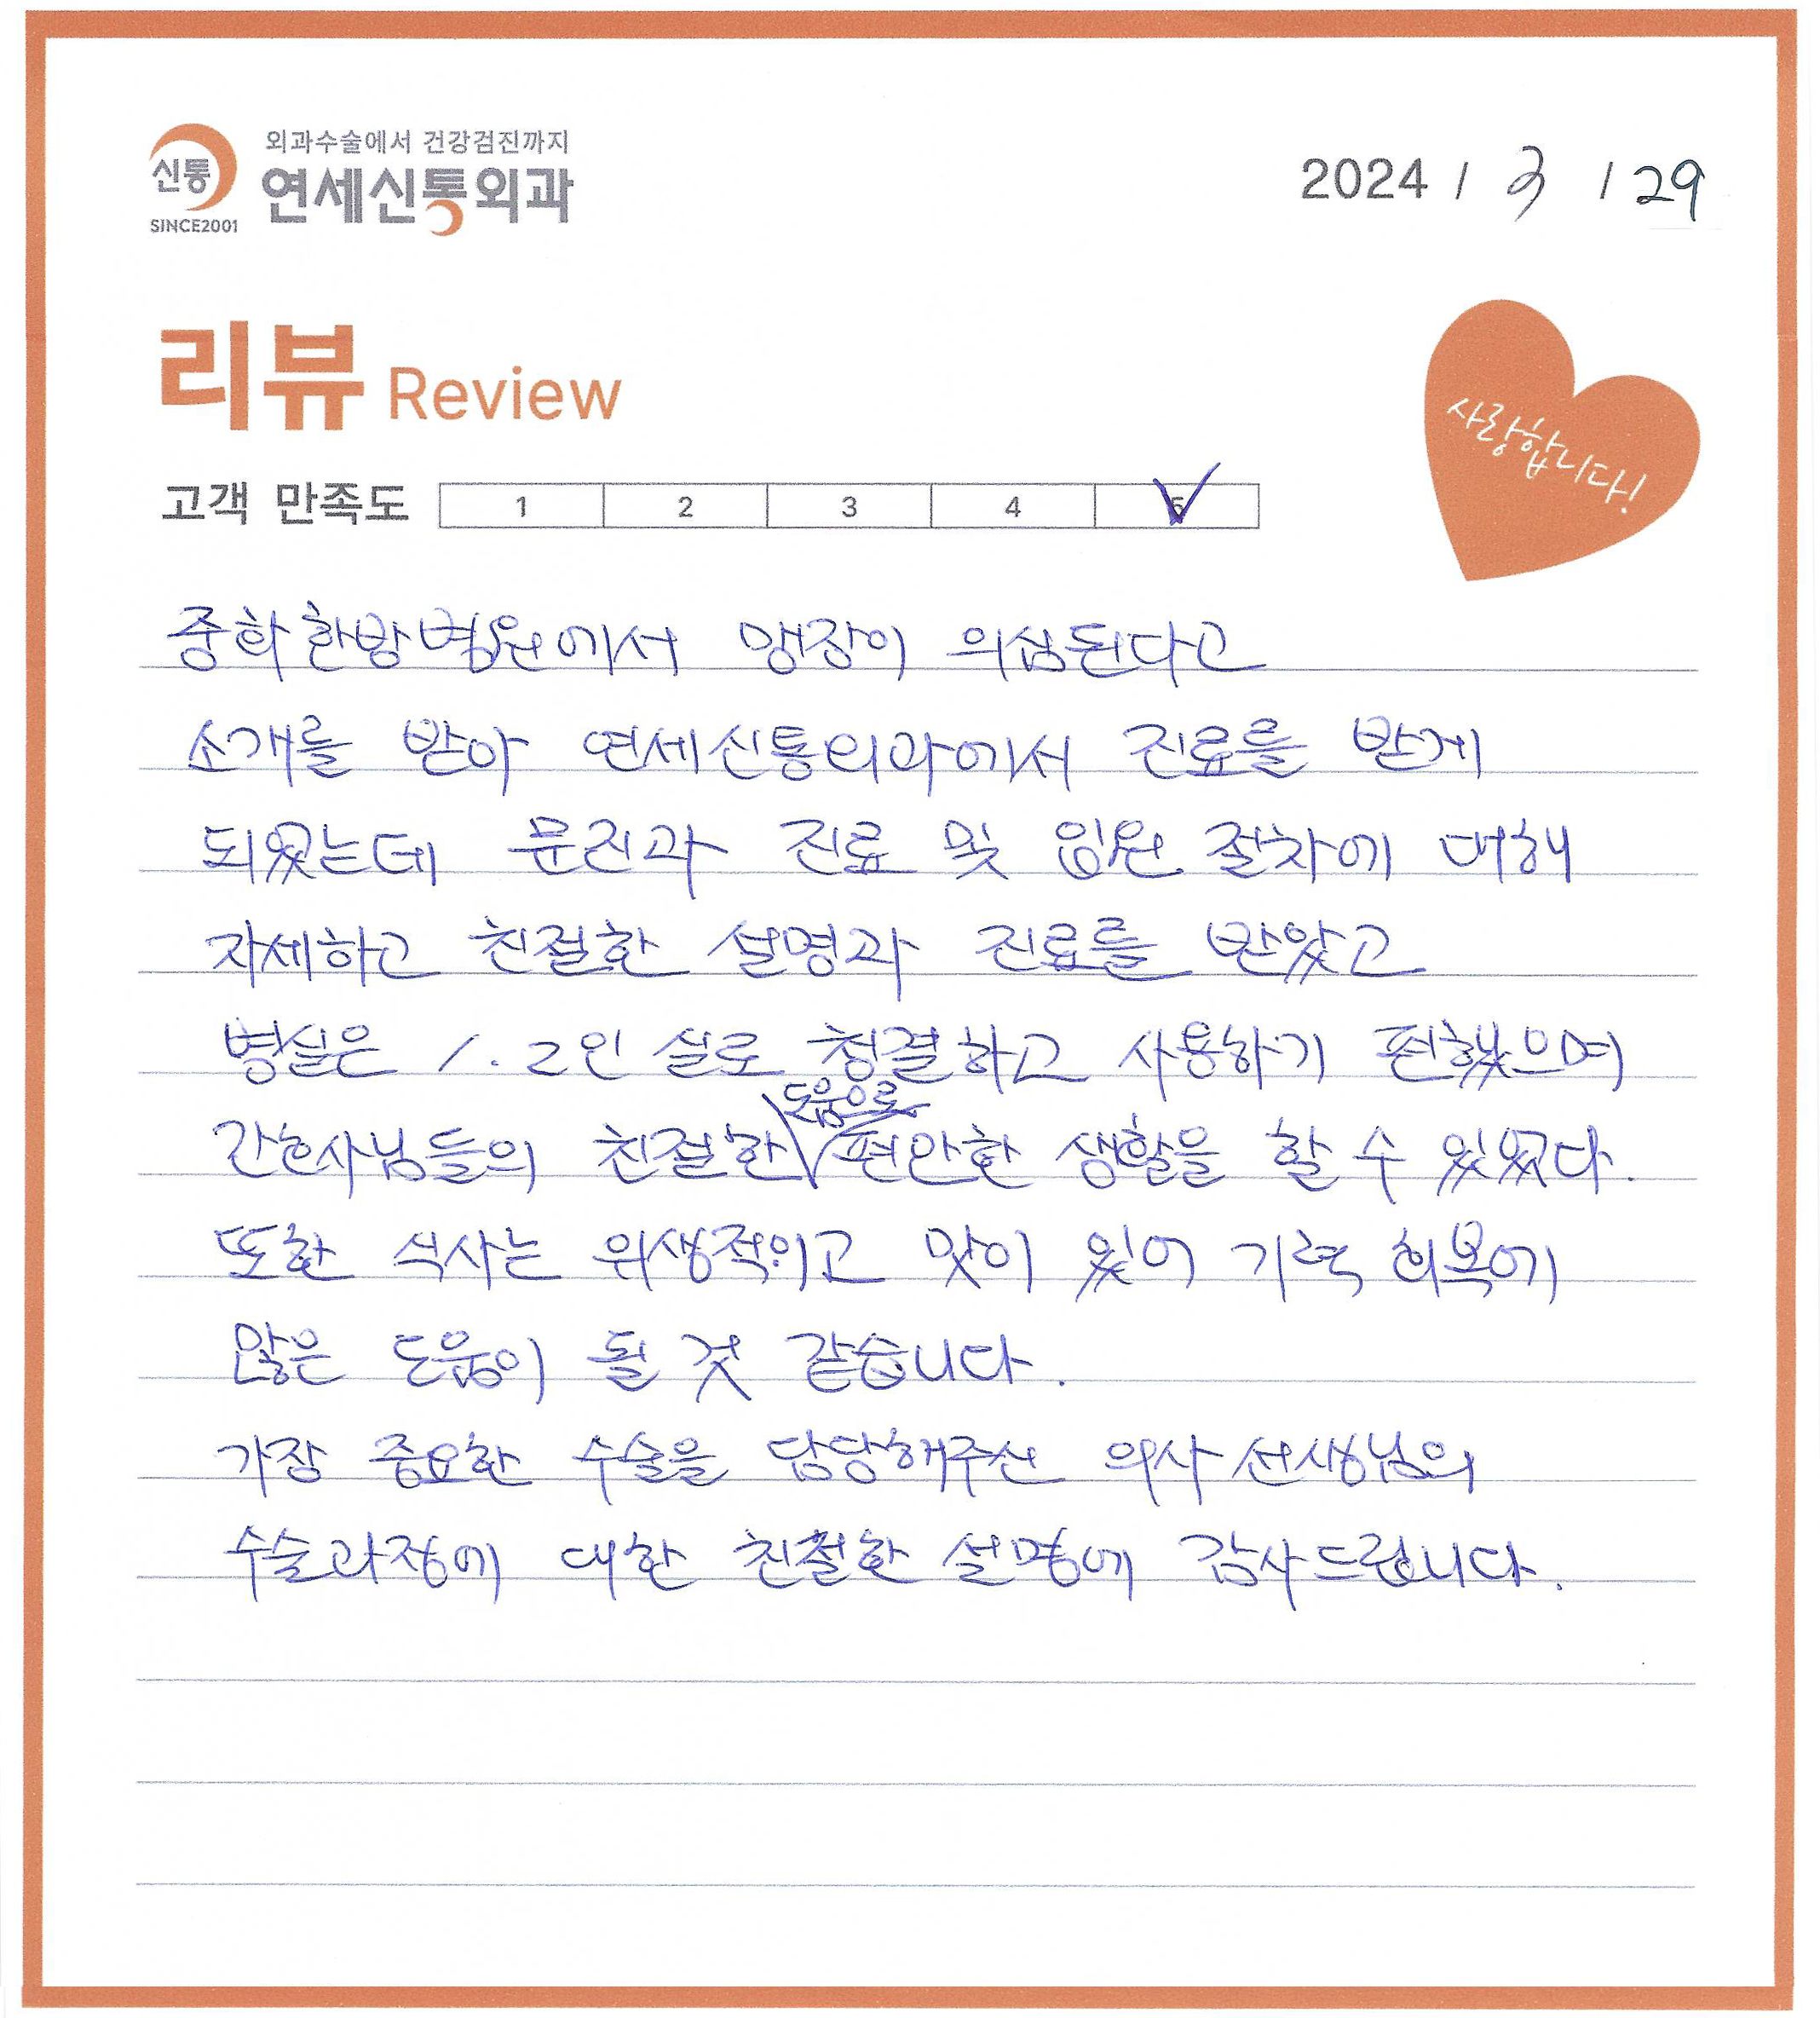 외과수술에서 건강검진까지
신통
연세신통외과
SINCE2001
2024 / 3 / 29
리뷰 Review
사랑합니다!
고객 만족도 1 2 3 4 5 ✓
중화한방병원에서 맹장이 의심된다고
소개를 받아 연세신통외과에서 진료를 받게
되었는데 문진과 진료 및 입원 절차에 대해
자세하고 친절한 설명과 진료를 받았고
병실은 1.2인실로 청결하고 사용하기 편했으며
간호사님들의 친절한 도움으로 편안한 생활을 할 수 있었다.
또한 식사는 위생적이고 맛이 있어 기력 회복에
많은 도움이 될 것 같습니다.
가장 중요한 수술을 담당해주신 의사선생님의
수술과정에 대한 친절한 설명에 감사드립니다.